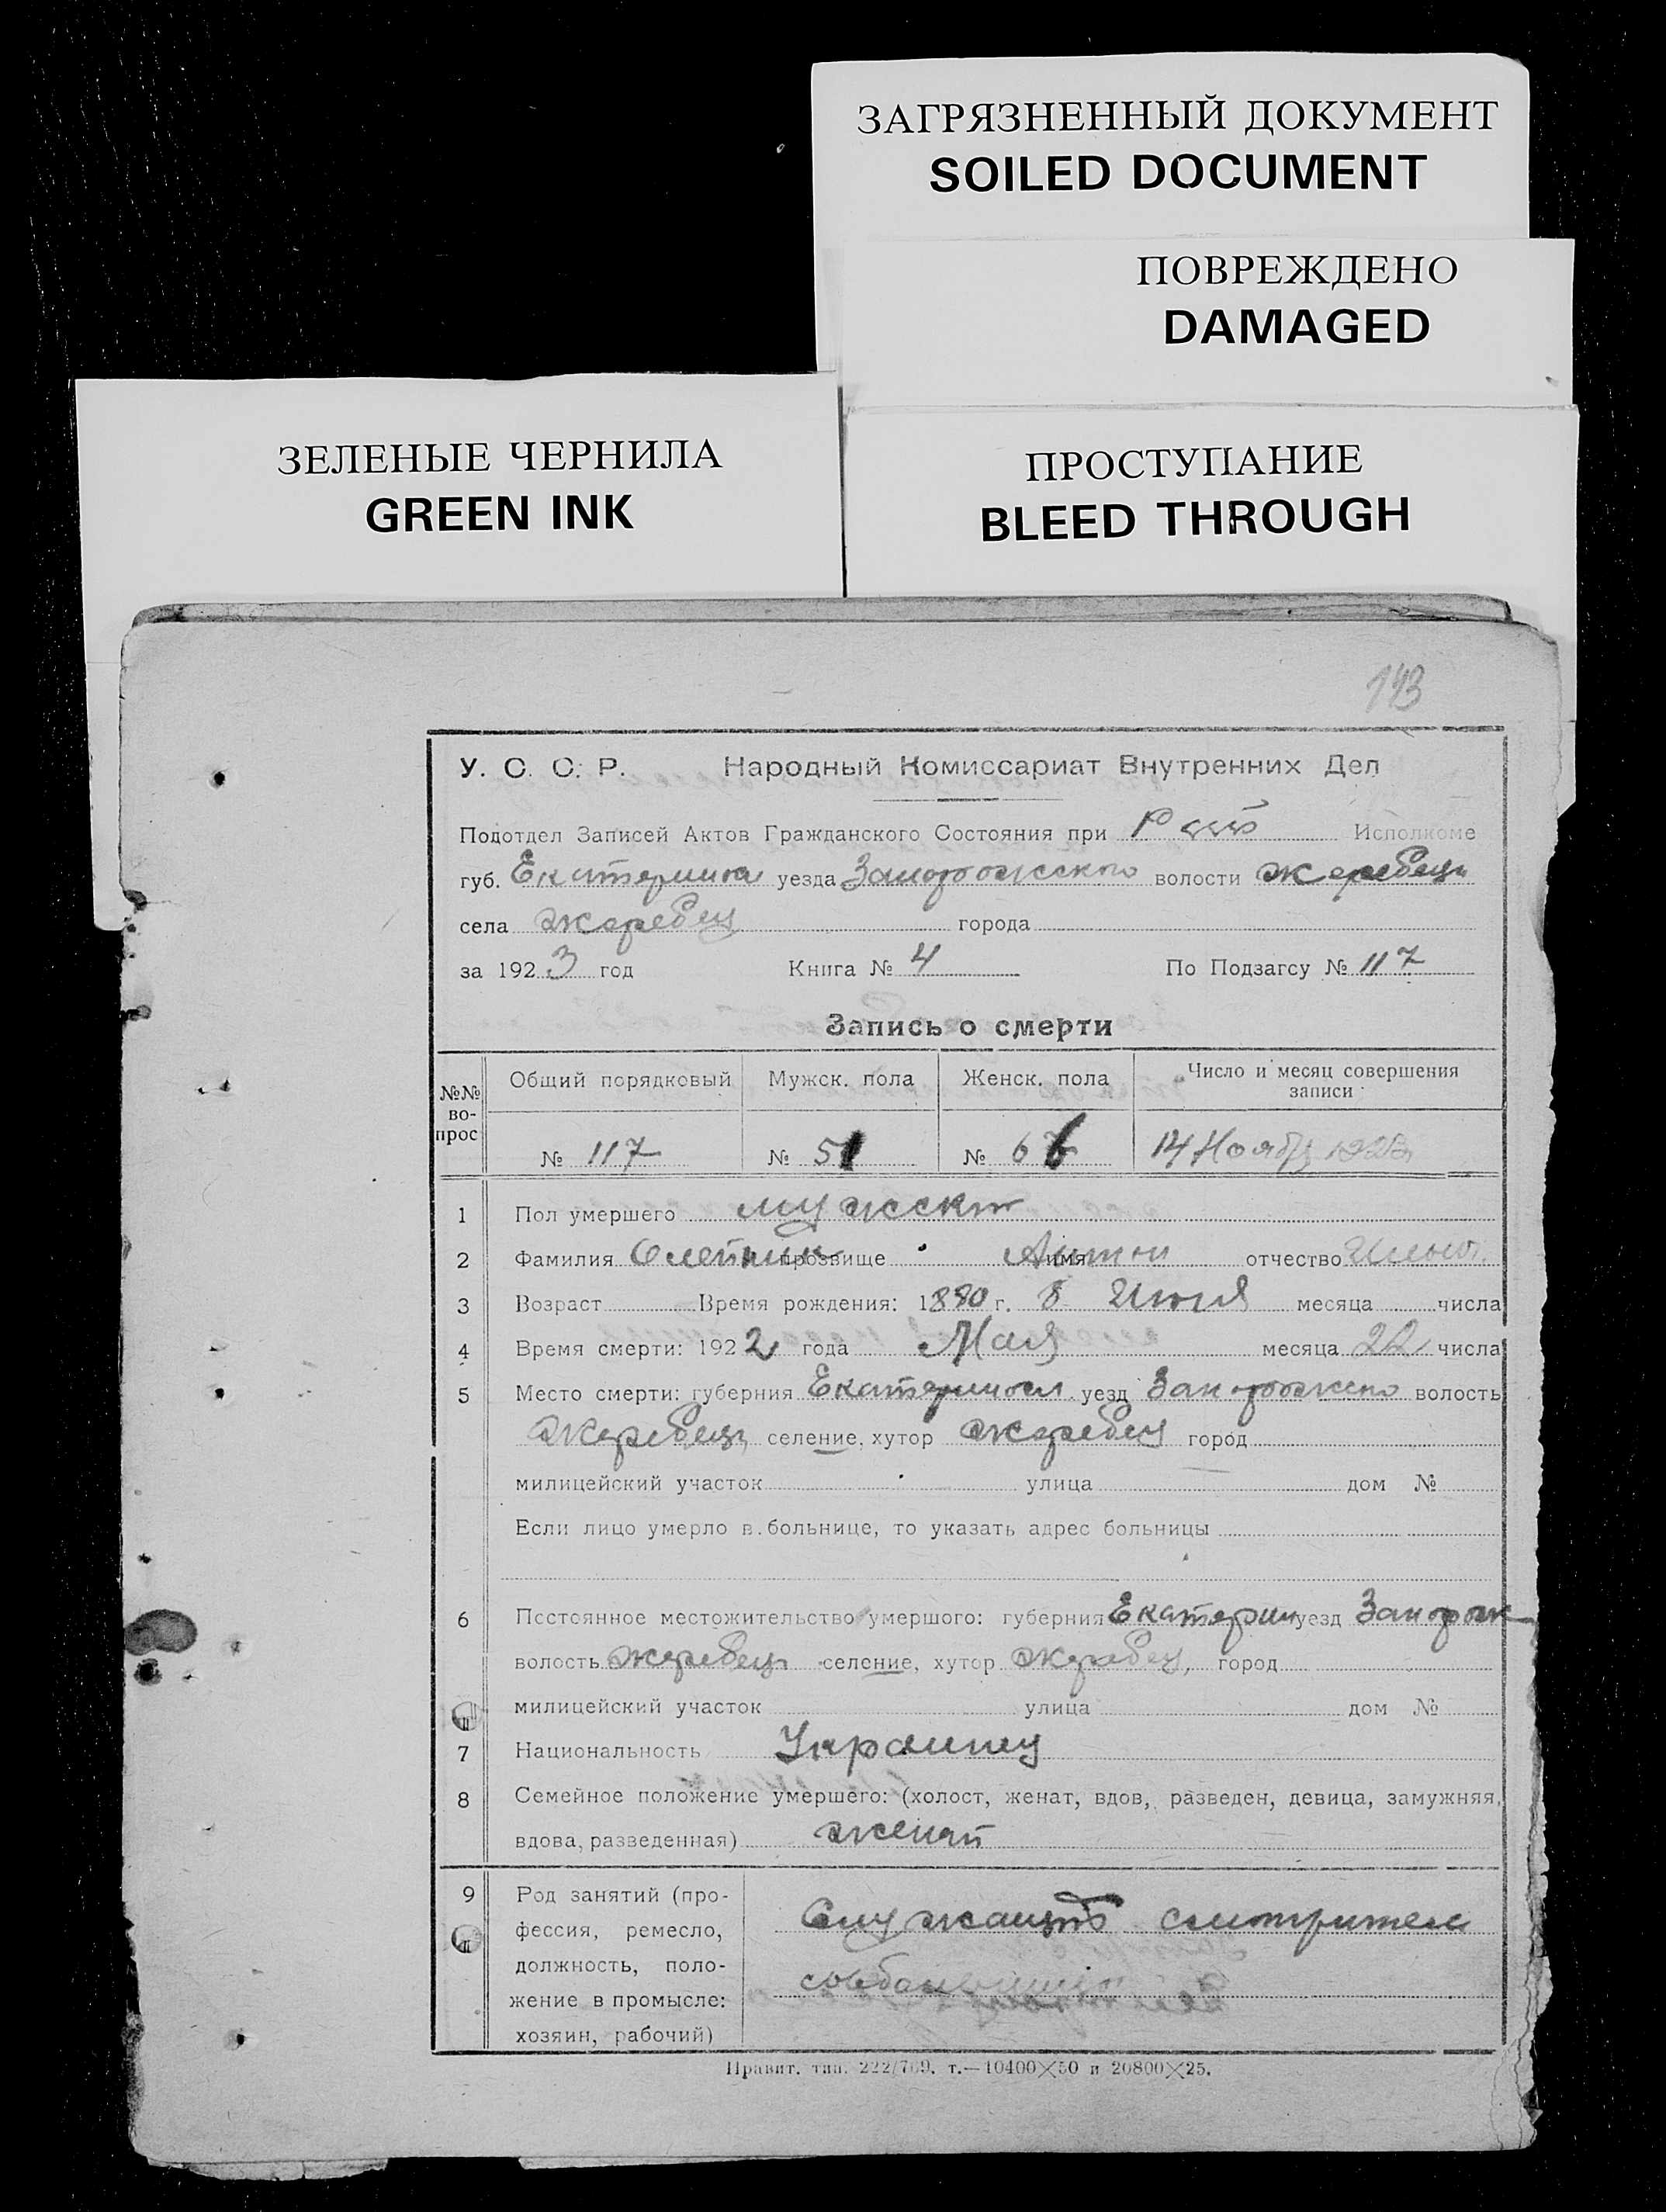 ЗАГРЯЗНЕННЫЙ ДОКУМЕНТ
SOILED DOCUMENT
ПОВРЕЖДЕНО
DAMAGED
ЗЕЛЕНЫЕ ЧЕРНИЛА
GREEN INK
ПРОСТУПАНИЕ
BLEED THROUGH
143
У. С. С. Р. Народный Комиссариат Внутренних Дел
Подотдел Записей Актов Гражданского Состояния при Исполкоме
губ. Екатерино уезда Запорожского волости Жеребецк
села Жеребец города
за 1923 год Книга № 4 По Подзагсу № 117
Запись о смерти
№№ во-прос Общий порядковый Мужск. пола Женск. пола Число и месяц совершения записи
№ 117 № 51 № 66 14 Ноябр 1923
1 Пол умершего мужской
2 Фамилия Олейник прозвище имя Антон отчество
3 Возраст Время рождения: 1880 г. 8 Июля месяца числа
4 Время смерти: 1922 года Мая месяца 22 числа
5 Место смерти: губерния Екатериносл уезд Запорожско волость
Жеребецк селение, хутор Жеребец город
милицейский участок улица дом №
Если лицо умерло в больнице, то указать адрес больницы
6 Постоянное местожительство умершого: губерния Екатерин уезд Запорож
волость Жеребец селение, хутор Жеребец город
милицейский участок улица дом №
7 Национальность Украинец
8 Семейное положение умершего: (холост, женат, вдов, разведен, девица, замужняя,
вдова, разведенная) женат
9 Род занятий (про-
фессия, ремесло,
должность, поло-
жение в промысле:
хозяин, рабочий)
Служащий смотрителем
Правит. тип. 222/769. т.—10400×50 и 20800×25.